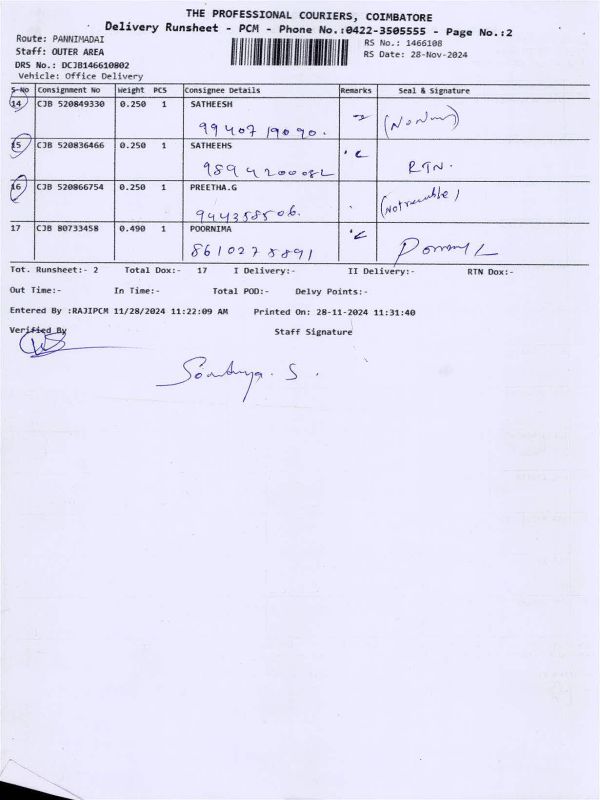 THE PROFESSIONAL COURIERS, COIMBATORE
Delivery Runsheet - PCM - Phone No.:0422-3505555 - Page No.:2
Route: PANNIMADAI
RS No.: 1466108
Staff: OUTER AREA
RS Date: 28-Nov-2024
DRS No.: DCJB146610802
Vehicle: Office Delivery
S-No Consignment No Weight PCS Consignee Details Remarks Seal & Signature
14 CJB 520849330 0.250 1 SATHEESH
99407 19090.
15 CJB 520836466 0.250 1 SATHEEHS
RTN.
16 CJB 520866754 0.250 1 PREETHA.G
944358506.
17 CJB 80733458 0.490 1 POORNIMA
8610278891
Tot. Runsheet:- 2 Total Dox:- 17 I Delivery:- II Delivery:- RTN Dox:-
Out Time:- In Time:- Total POD:- Delvy Points:-
Entered By :RAJIPCM 11/28/2024 11:22:09 AM Printed On: 28-11-2024 11:31:40
Verified By Staff Signature